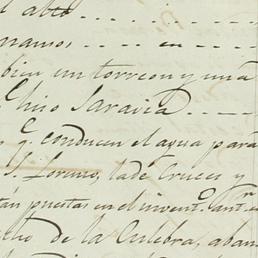 l abto - - - - -
namos, - - - - en - -
bien un torreon y una
Chino Saravia - - - -
q.e conducen el agua para
S. Lorenzo, la de Cruces y
tán puestas en el invent.o ant.r
de la Culebra, aban